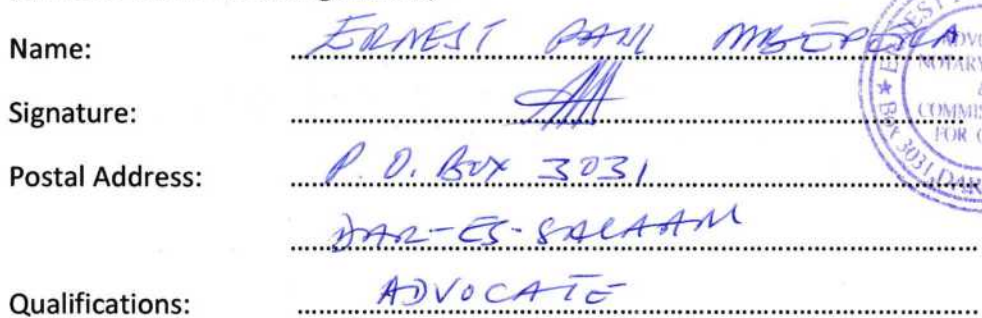 Name: ERNEST PANI MBEPERA
Signature:
Postal Address: P. O. Box 3031
DAR-ES-SALAAM
Qualifications: ADVOCATE
ADVO
NOTARY
&
COMMIS
FOR O
Box 3031, DAR